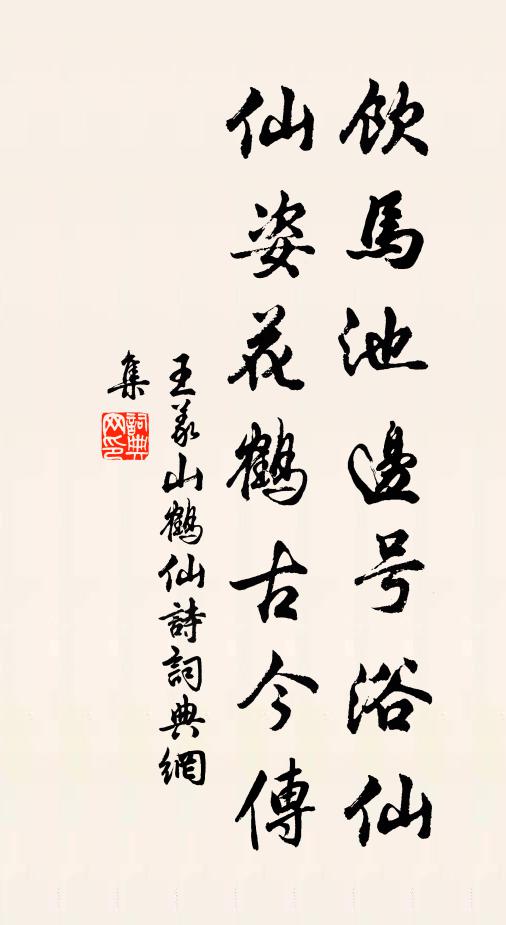 飲馬池邊号浴仙
仙姿花鶴古今傳
王義山鶴仙詩詞典網
集
詞典
网印